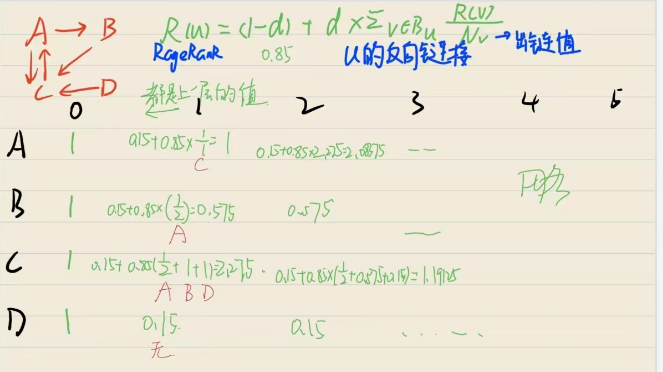 A → B R(u) = (1-d) + d × Σ v∈Bu R(V)/Nv → 出链值
RageRank 0.85 U的反向链接
C ← D
都是上一层的值
0 1 2 3 4 5
A 1 0.15+0.85×1/1=1 0.15+0.85×2.275=2.08375 --
C
网络
B 1 0.15+0.85×(1/2)=0.575 0.575 —
A
C 1 0.15+0.85(1/2+1+1)=2.275 0.15+0.85×(1/2+0.575+0.15)=1.19125
A B D
D 1 0.15. 0.15 ......
无